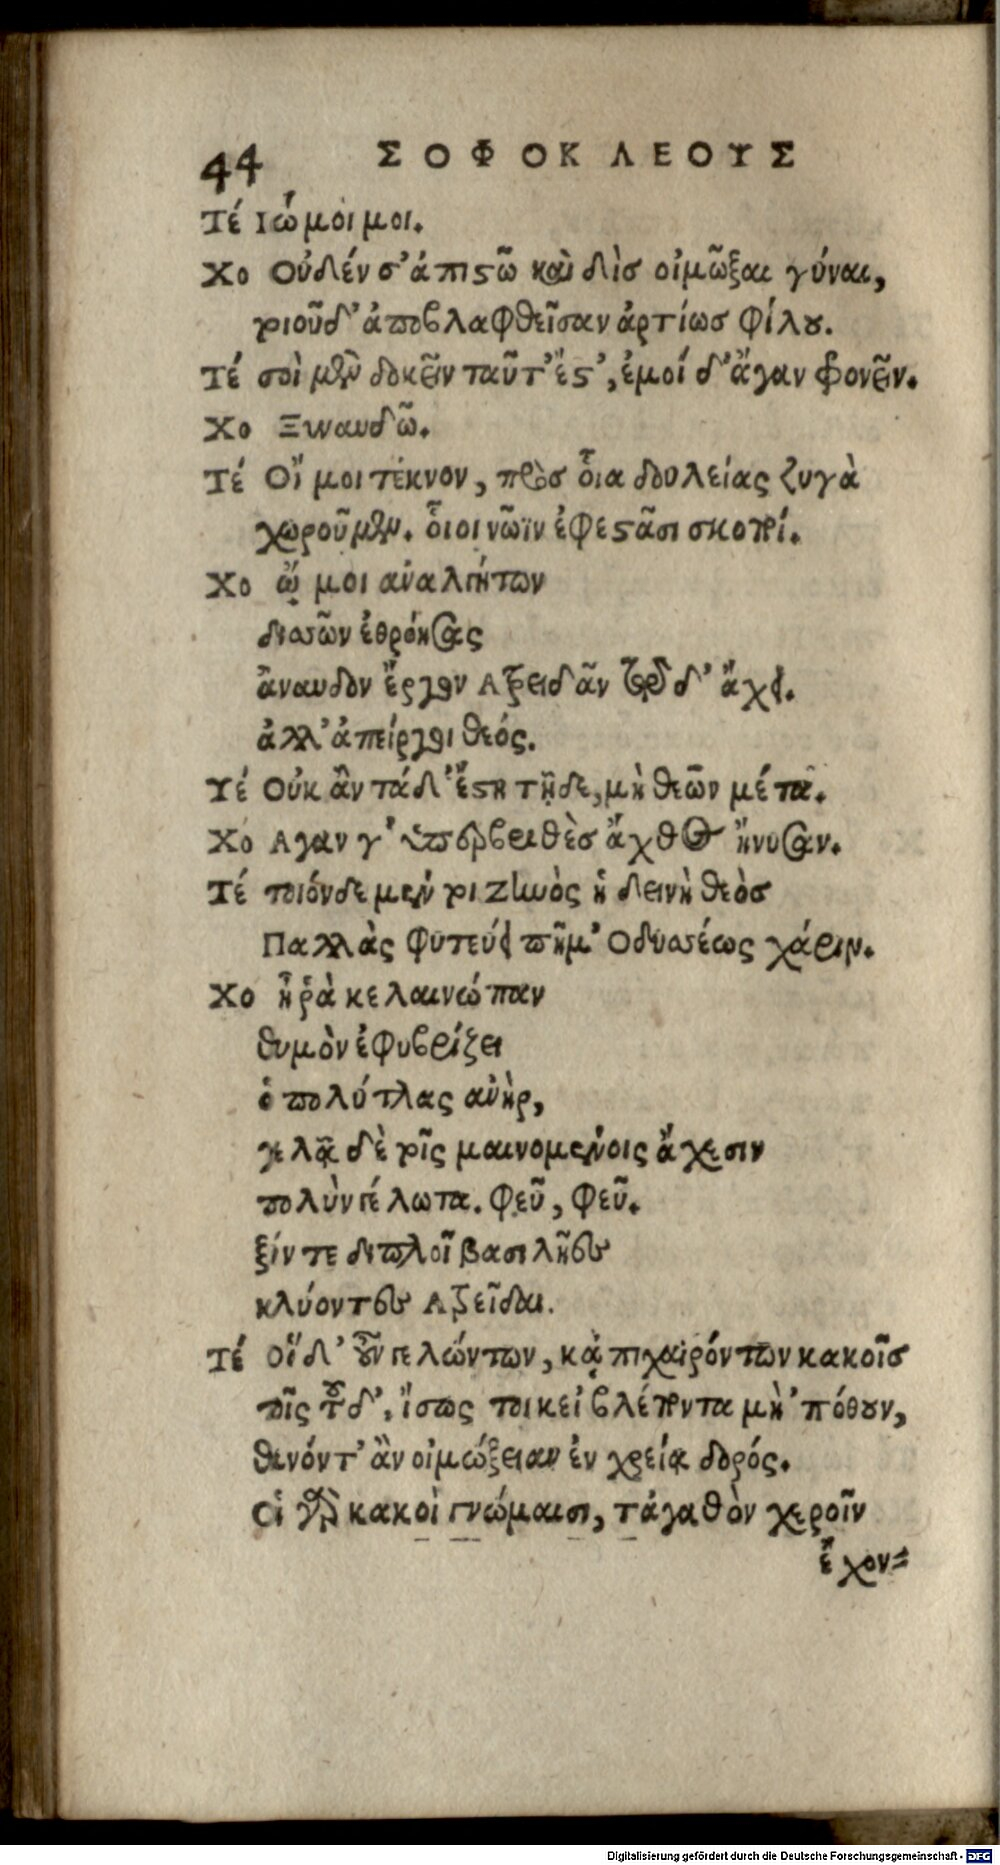 44 ΣΟΦΟΚΛΕΟΥΣ
Τέ Ιώ μοι μοι.
Χο Οὐδέν σ’ ἀπιστῶ καὶ δὶσ οἰμῶξαι γύναι,
τοιοῦδ’ ἀποβλαφθεῖσαν ἀρτίωσ φίλου.
Τέ σοὶ μὲν δοκεῖν ταῦτ’ ἔστ’, ἐμοί δ’ ἄγαν φρονεῖν.
Χο Ξυναυδῶ.
Τέ Οἴ μοι τέκνον, πρὸσ οἷα δουλείας ζυγὰ
χωροῦμεν. οἷοι νῶϊν ἐφεστᾶσι σκοποί.
Χο ᾤ μοι ἀναλγήτων
δισσῶν ἐθρόησας
ἄναυδον ἔργον Ατρειδᾶν τῷδ’ ἄχει.
ἀλλ’ ἀπείργοι θεός.
Τέ Οὐκ ἂν τάδ’ ἔστη τῇδε, μὴ θεῶν μέτα.
Χο Αγαν γ’ ὑπερβριθὲσ ἄχθος ἤνυσαν.
Τέ τοιόνδε μέν τοι Ζηνὸς ἡ δεινὴ θεὸσ
Παλλὰς φυτεύει πῆμ’ Οδυσσέως χάριν.
Χο ἦ ῥὰ κελαινώπαν
θυμὸν ἐφυβρίζει
ὁ πολύτλας ἀνὴρ,
γελᾷ δὲ τοῖς μαινομένοις ἄχεσιν
πολὺν γέλωτα. φεῦ, φεῦ.
ξύν τε διπλοῖ βασιλῆες
κλύοντες Ατρεῖδαι.
Τέ Οἵδ’ οὖν γελώντων, κᾀπιχαιρόντων κακοῖσ
τοῖς τοῦδ’, ἴσως τοι κεἰ βλέποντα μὴ ’πόθουν,
θανόντ’ ἂν οἰμώξειαν ἐν χρείᾳ δορός.
Οἱ γὰρ κακοὶ γνώμαισι, τἀγαθὸν χεροῖν
ἔχον=
Digitalisierung gefördert durch die Deutsche Forschungsgemeinschaft - DFG